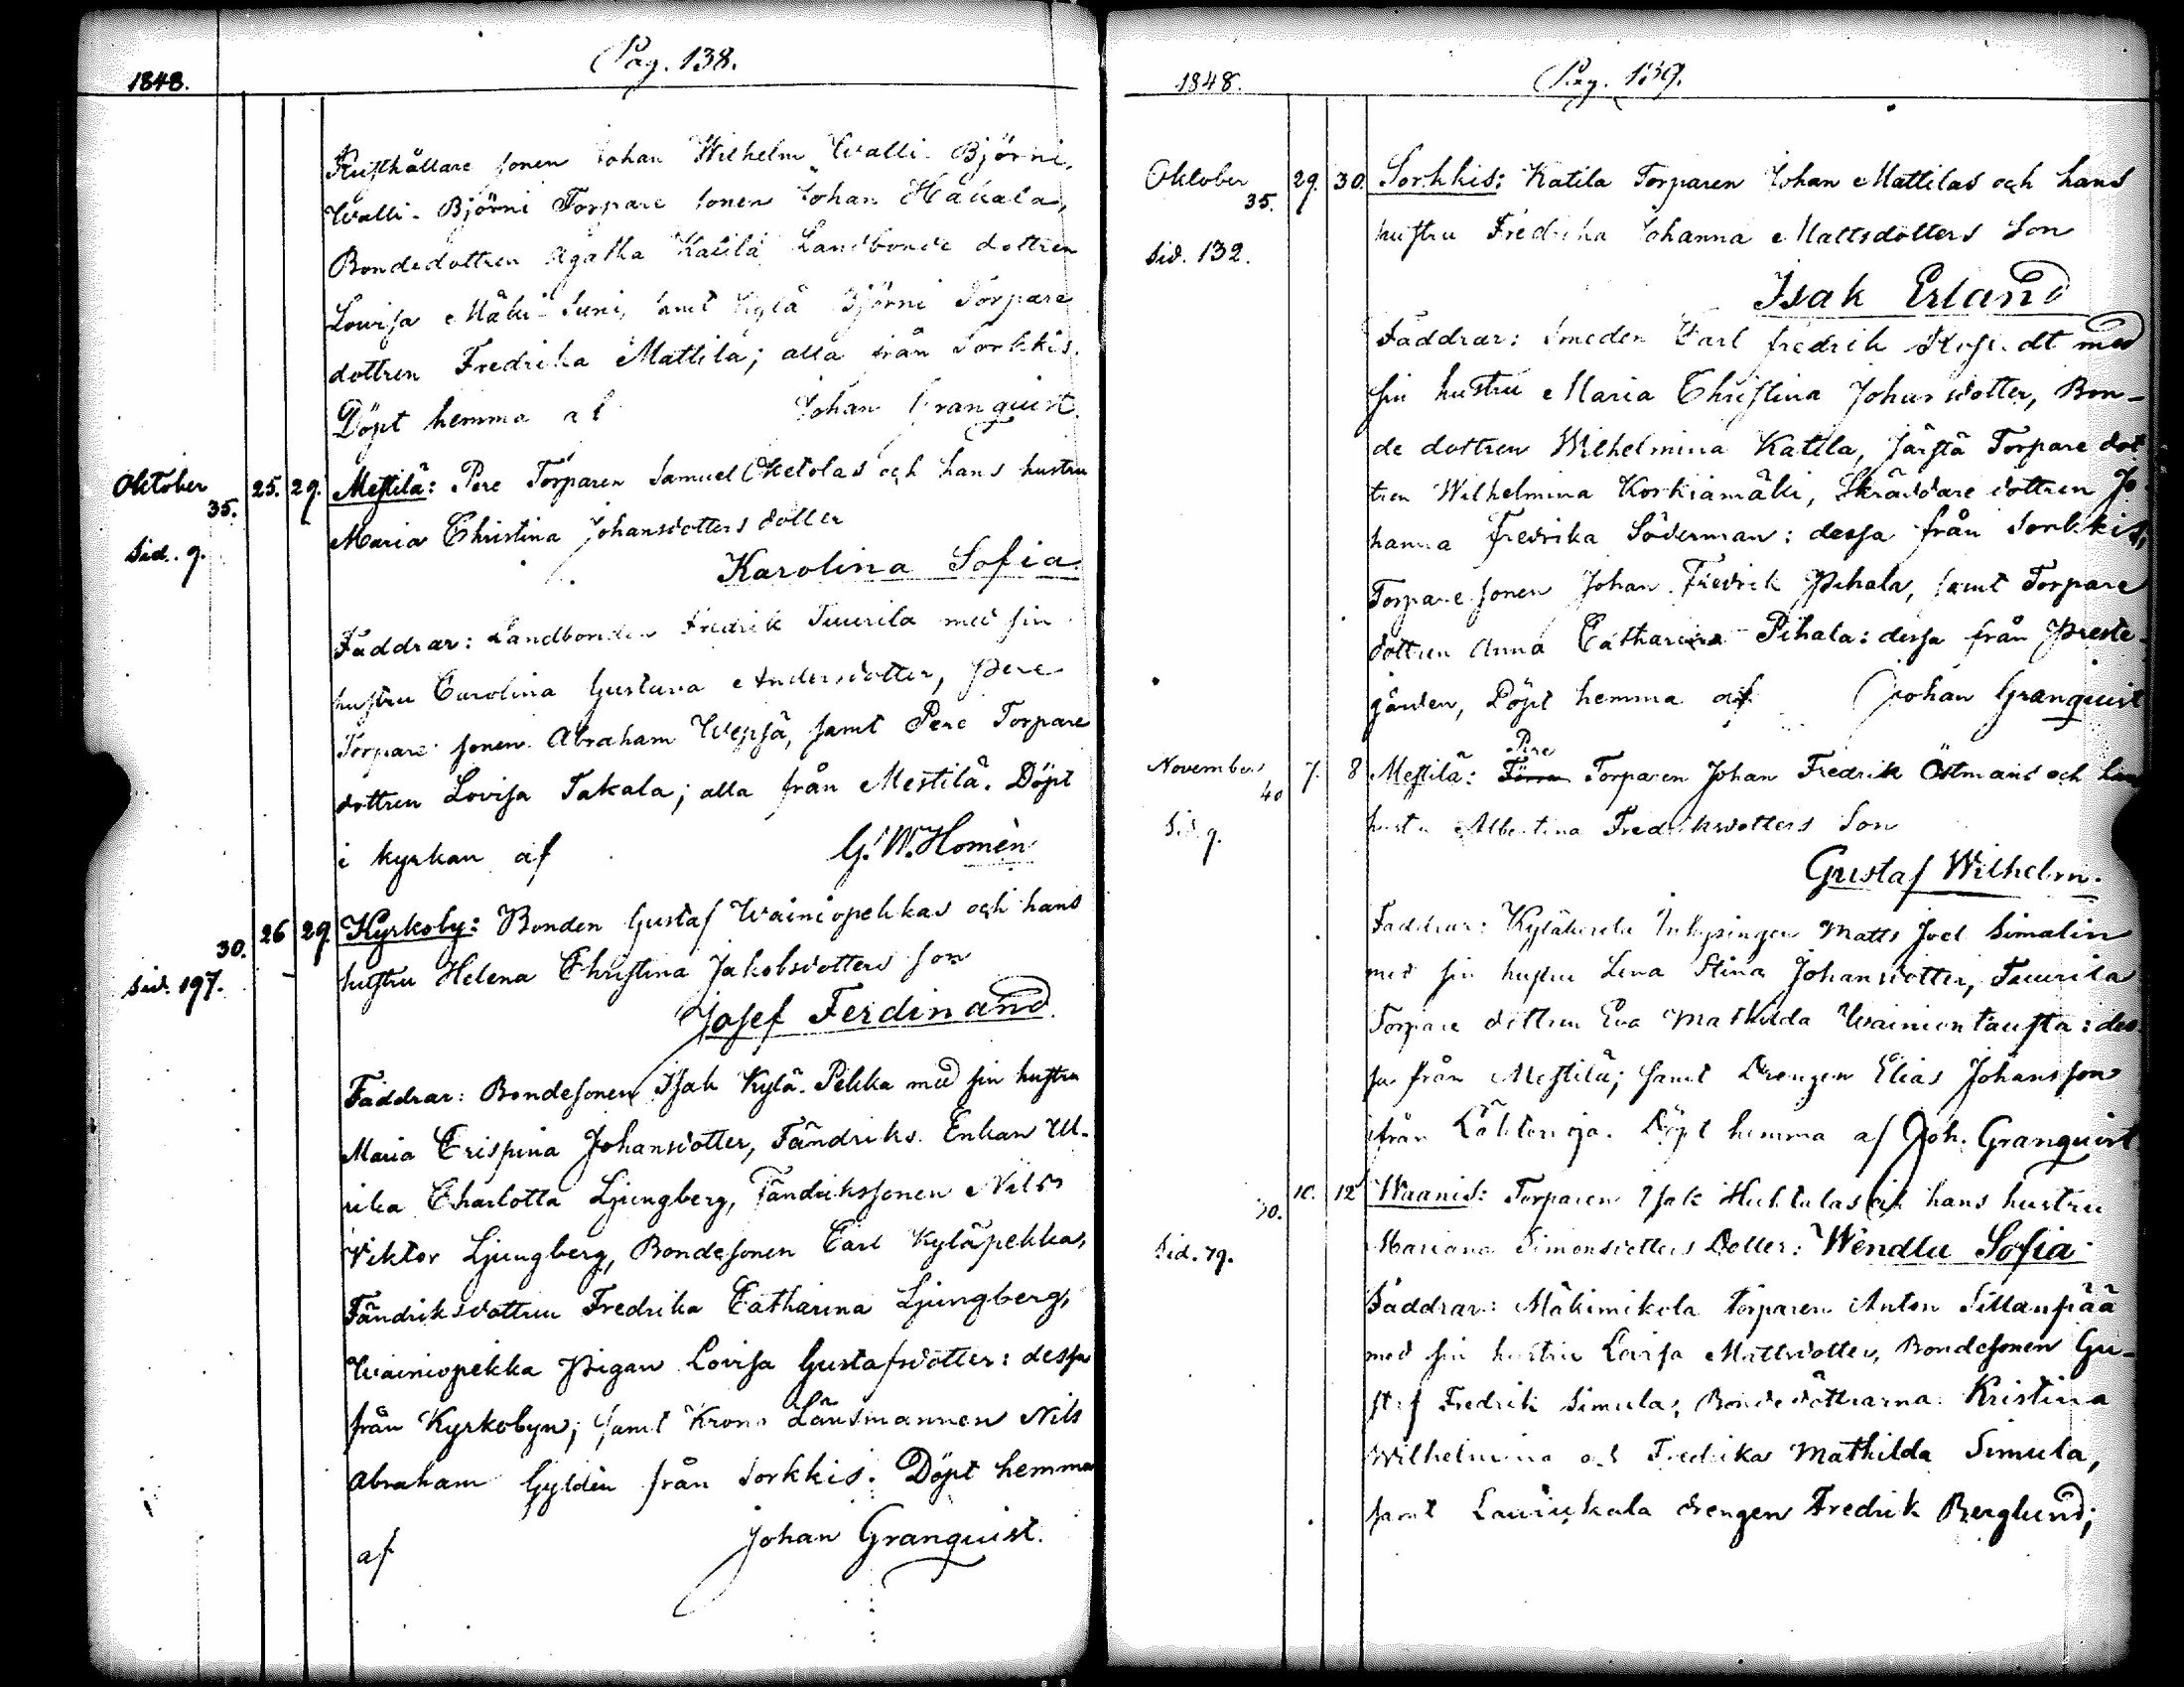 Pag. 138.
1848.
Rusthållare sonen Johan Wilhelm Walli-Björni,
Walli-Björni Torpare sonen Johan Hakala,
Bondedottren Agatha Katila, Landbonde dottren
Lovisa Mäki-Suni, samt Kylä Björni Torpare
dottren Fredrika Mattila; alla från Sorkkis.
Döpt hemma af Johan Granquist.
Oktober 35. 25. 29. Mestilä: Pere Torparen Samuel Ketolas och hans hustru
Maria Christina Johansdotters dotter
Sid. 9.
Karolina Sofia.
Faddrar: Landbonden Fredrik Tuurila med sin
hustru Carolina Gustava Andersdotter, Pere
Torpare sonen Abraham Wepsä, samt Pere Torpare
dottren Lovisa Takala; alla från Mestilä. Döpt
i kyrkan af G. W. Homèn
30. 26 29. Kyrkoby: Bonden Gustaf Wainiopekkas och hans
hustru Helena Christina Jakobsdotters son
Sid. 197.
Josef Ferdinand.
Faddrar: Bondesonen Isak Kylä-Pekka med sin hustru
Maria Crispina Johansdotter, Fändriks Enkan Ul-
rika Charlotta Ljungberg, Fändrikssonen Nils
Viktor Ljungberg, Bondesonen Carl Kyläpekka,
Fändriksdottren Fredrika Catharina Ljungberg,
Wainiopekka Pigan Lovisa Gustafsdotter: dessa
från Kyrkobyn; samt Krono Länsmannen Nils
Abraham Gyldèn från Sorkkis. Döpt hemma
af Johan Granquist.
Pag. 139.
1848.
Oktober 35. 29. 30. Sorkkis: Katila Torparen Johan Mattilas och hans
hustru Fredrika Johanna Mattsdotters Son
Sid. 132.
Isak Erland
Faddrar: Smeden Carl Fredrik med
sin hustru Maria Christina Johansdotter, Bon-
de dottren Wilhelmina Katila, Torpare dot
tren Wilhelmina Korkiamäki, Skräddare dottren Jo-
hanna Fredrika Söderman: dessa från Sorkkis,
Torpare sonen Johan Fredrik Pihala, samt Torpare
dottren Anna Catharina Pihala: dessa från Preste-
gården, Döpt hemma af Johan Granquist
Pere
November 40 7. 8 Mestilä: Torparen Johan Fredrik Östmans och hans
hustru Albertina Fredriksdotters Son
Sid. 9.
Gustaf Wilhelm.
Faddrar: Inhysingen Matts Joel Simalin
med sin hustru Lena Stina Johansdotter, Tuurila
Torpare dottren Eva Mathilda Wainiontausta: des-
sa från Mestilä; samt Drengen Elias Johansson
från Döpt hemma af Joh. Granquist
30. 10. 12 Waanis: Torparen Isak Huhtalas och hans hustru
Mariana Simonsdotters Dotter: Wendla Sofia
Sid. 79.
Faddrar: Mäkimikola Torparen Anton Sillanpää
med sin hustru Lovisa Mattsdotter, Bondesonen Gu-
staf Fredrik Simula, Bondedöttrarna Kristina
Wilhelmina och Fredrika Mathilda Simula,
samt drengen Fredrik Berglund;